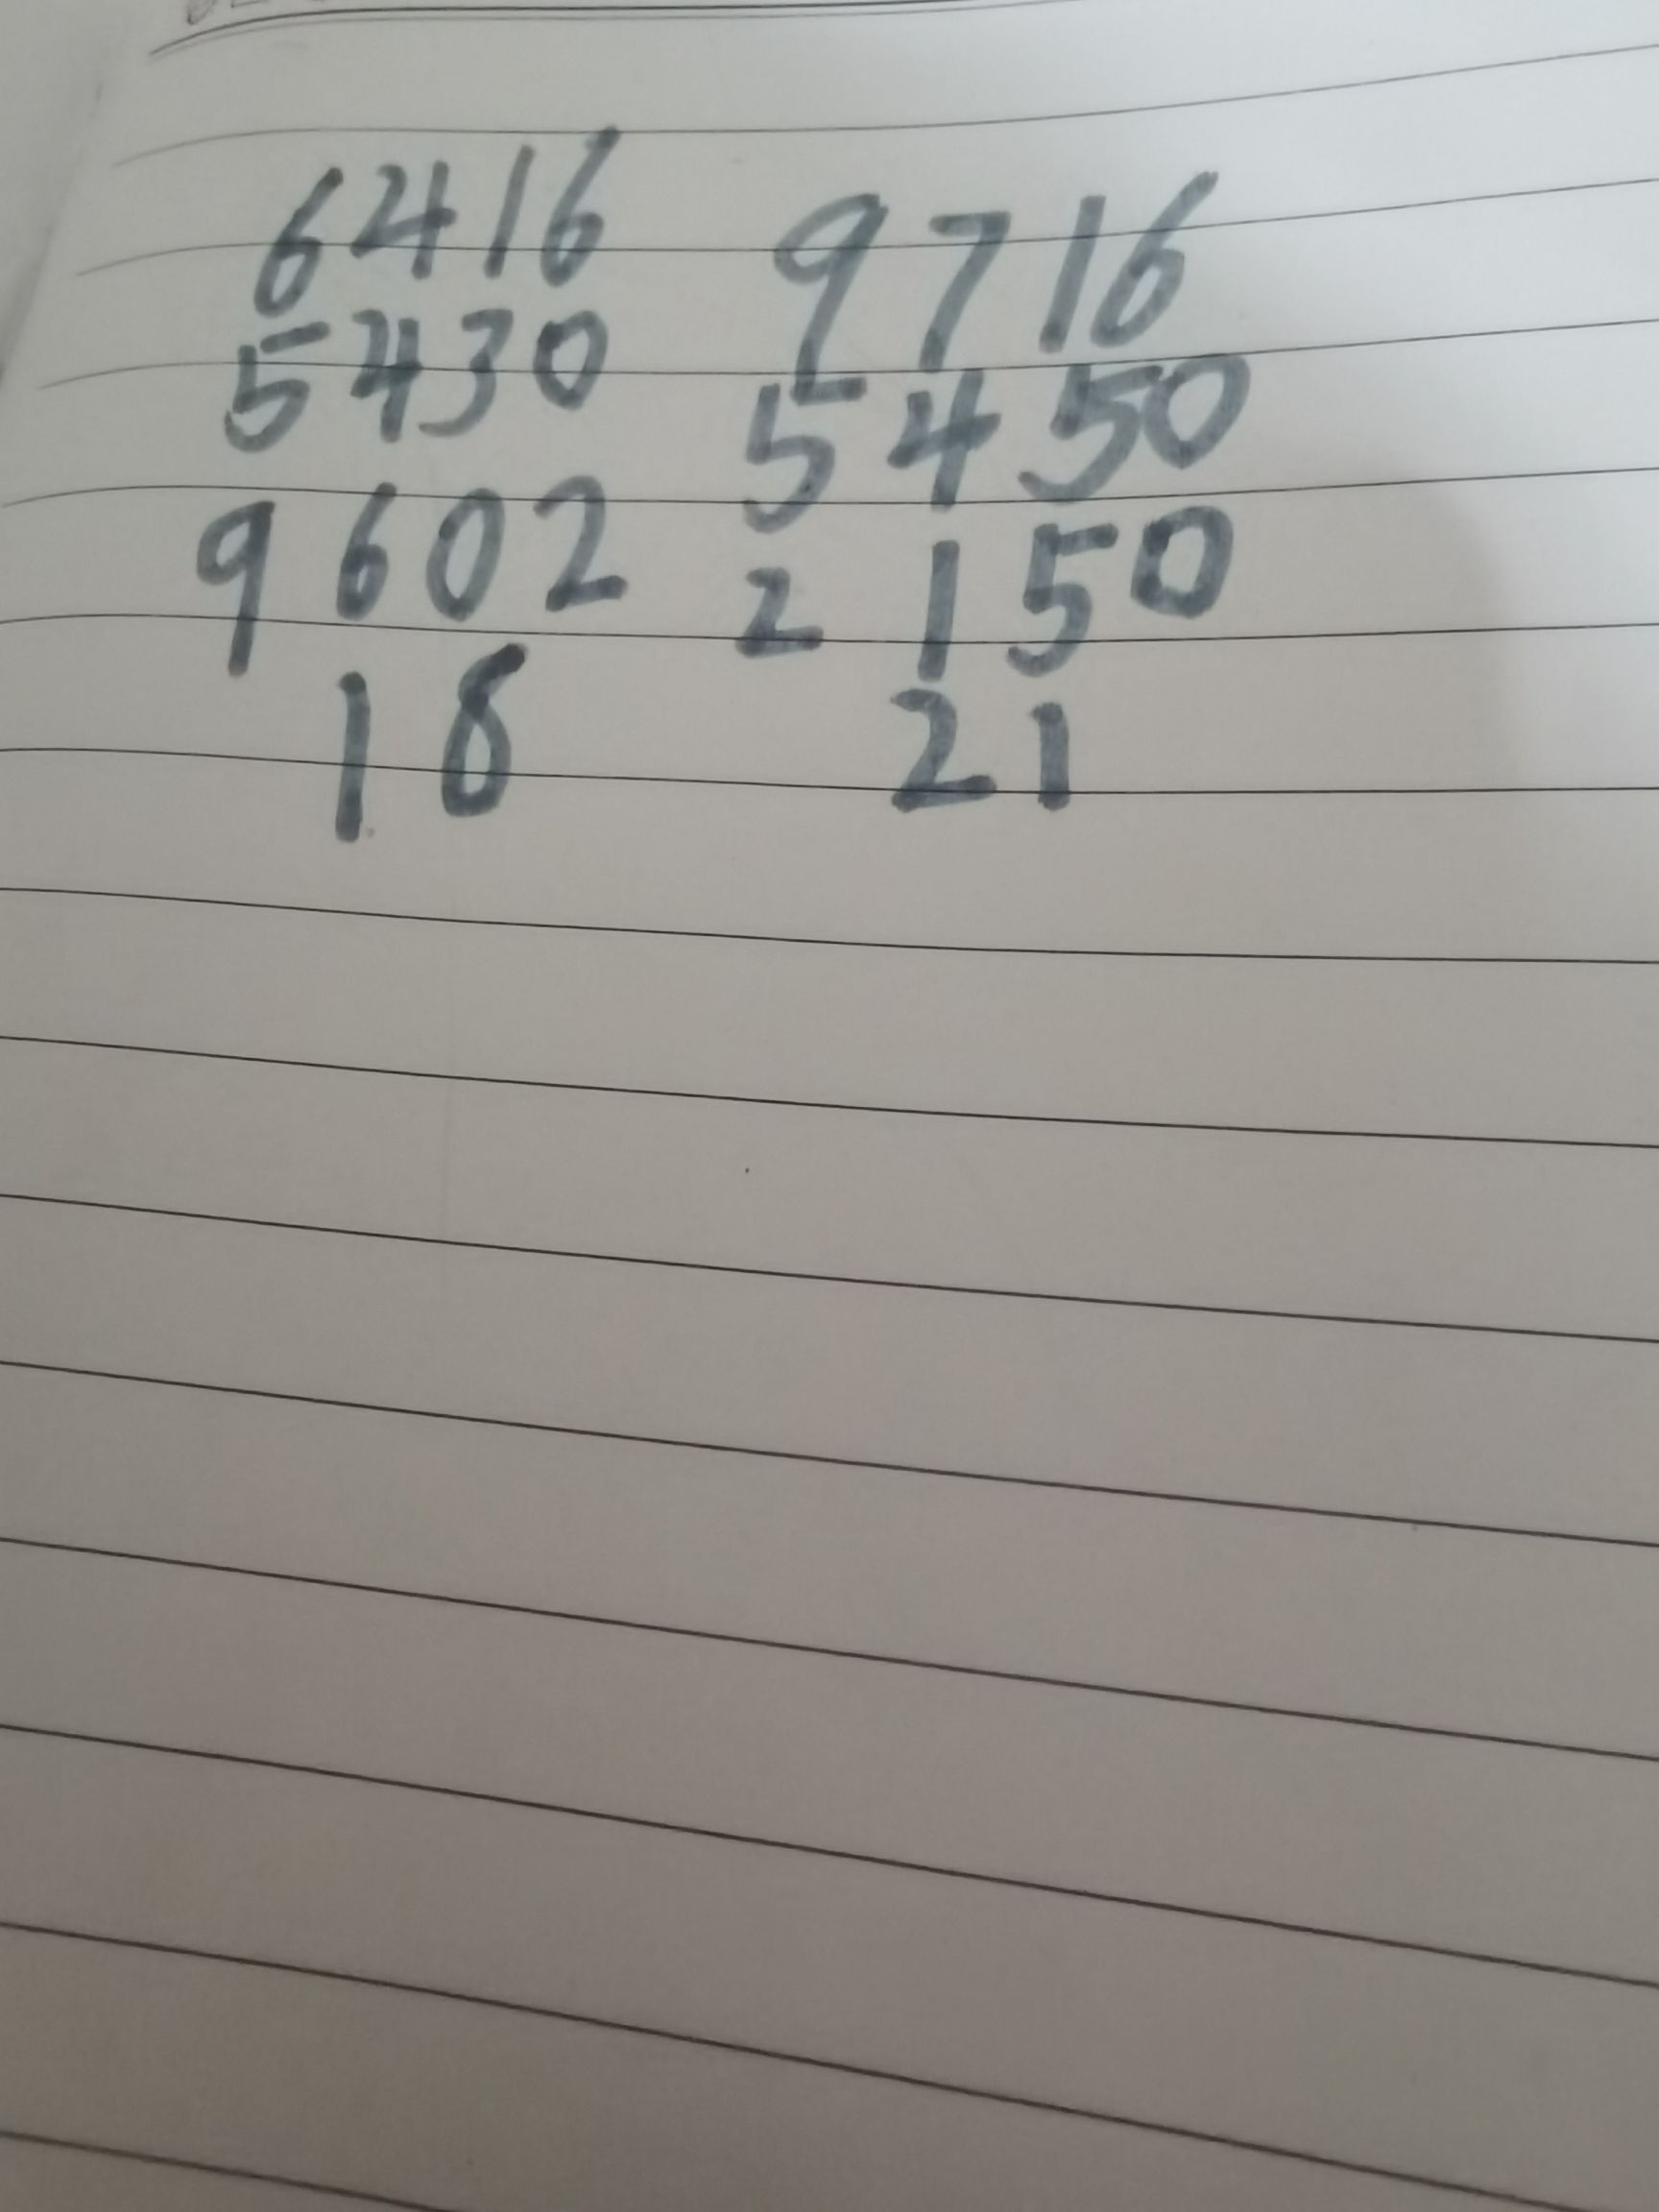 6416 9716
5430 5450
9602 2150
18 21